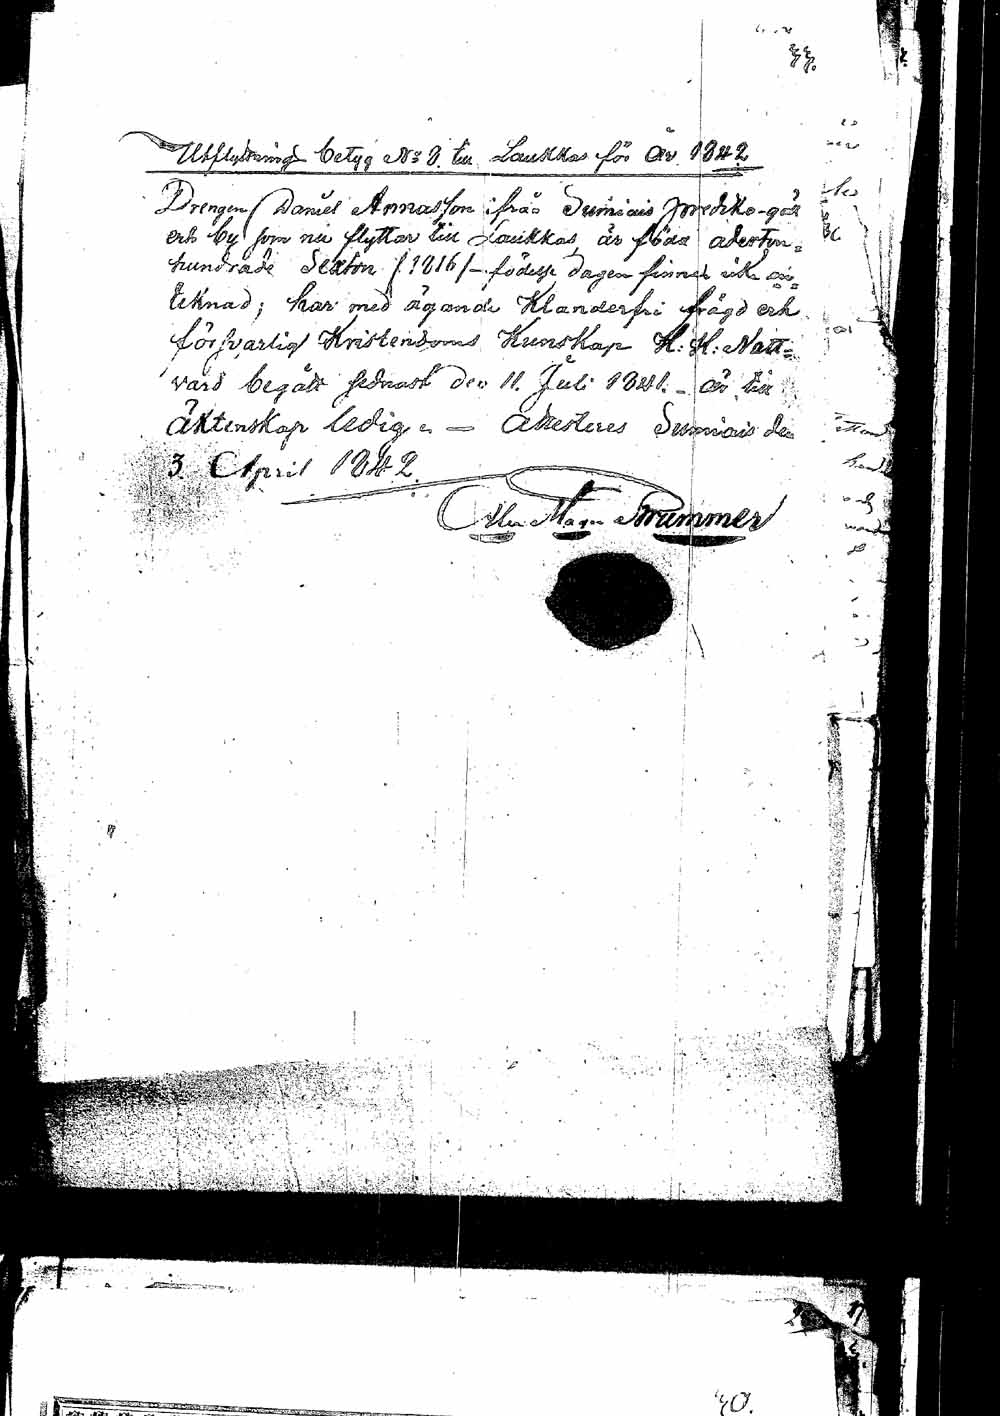 33.
Utflyttnings betyg No 9. till Laukkas för år 1842
Drengen Daniel Annasson ifrån Sumiais prediko-gäll
och by som nu flyttar till Laukkas, är född aderton-
hundrade Sexton /1816/ - födelse dagen finnes ick an-
teknad; har med ägande Klanderfri frägd och
försvarlig Kristendoms Kunskap H: H: Natt-
vard begått sednast den 11. Juli 1841. - är till
äktenskap ledig. — Attesteras Sumiais den
3. April 1842.
Magn Brummer
40.